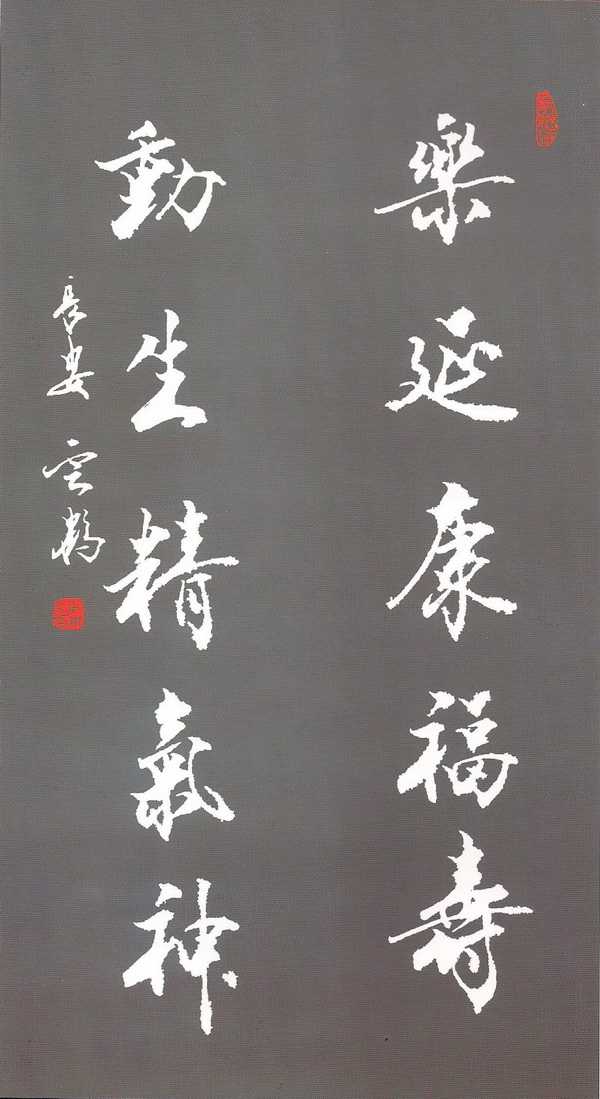 樂延康福壽
動生精氣神
長安 雲鶴